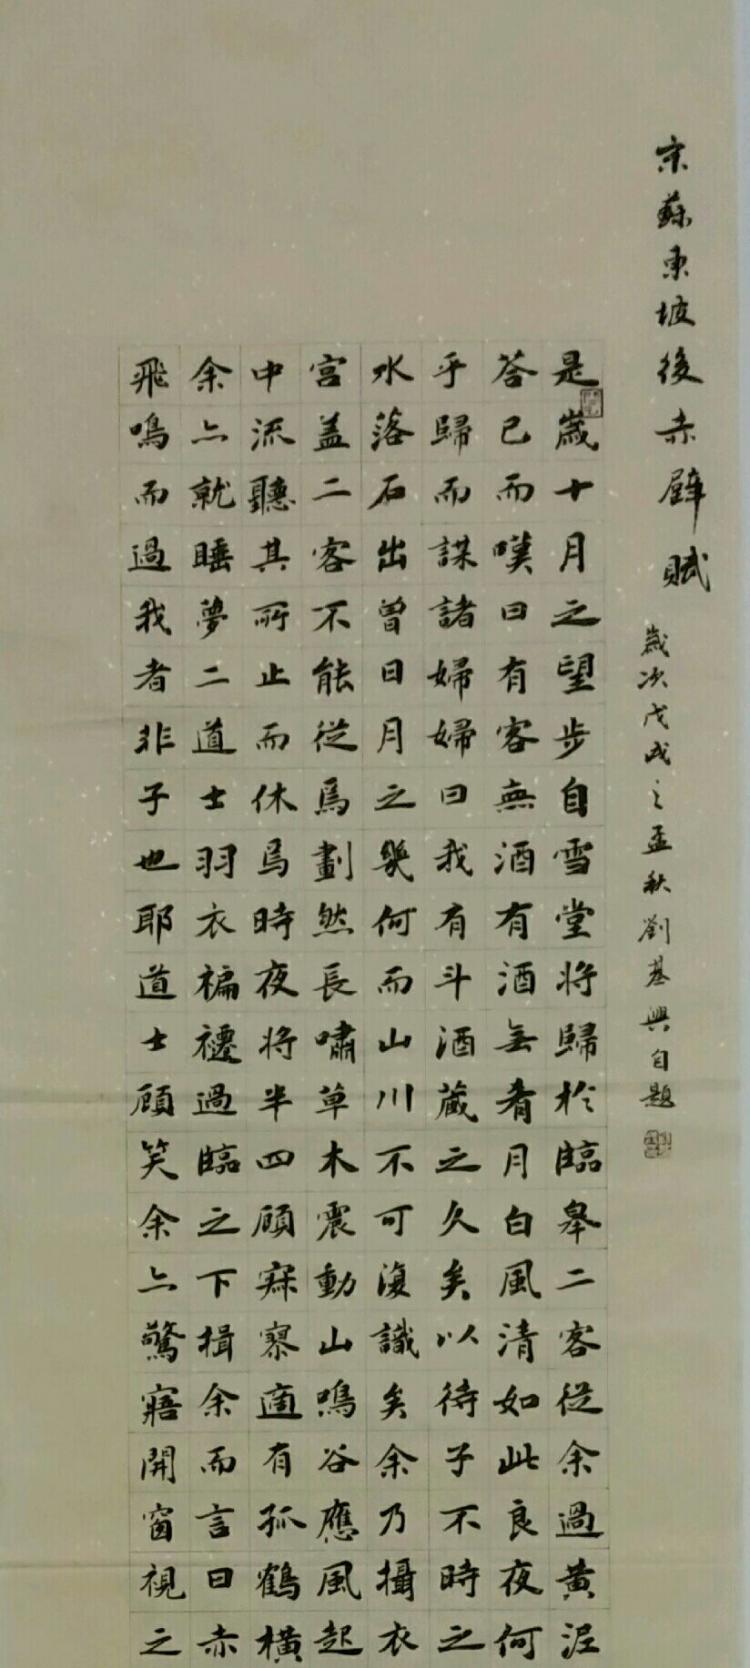 宋蘇東坡後赤壁賦
歲次戊戌之孟秋劉基興自題
是歲十月之望步自雪堂將歸於臨皋二客從余過黃泥
答已而嘆曰有客無酒有酒無肴月白風清如此良夜何
乎歸而謀諸婦婦曰我有斗酒藏之久矣以待子不時之
水落石出曾日月之幾何而山川不可復識矣余乃攝衣
宮蓋二客不能從焉劃然長嘯草木震動山鳴谷應風起
中流聽其所止而休焉時夜將半四顧寂寥適有孤鶴橫
余亦就睡夢二道士羽衣褊褼過臨之下揖余而言曰赤
飛鳴而過我者非子也耶道士顧笑余亦驚寤開窗視之